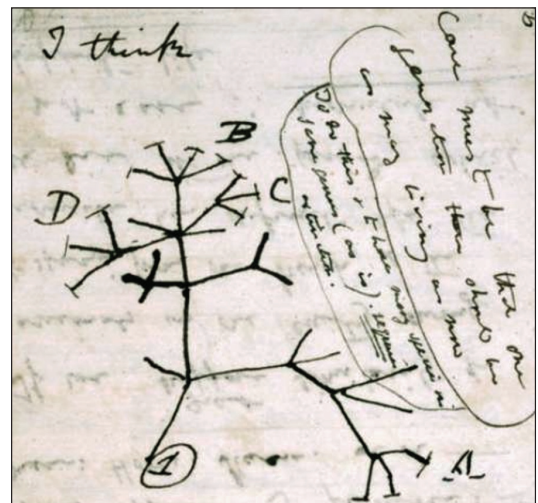 I think
Case must be that one
generation then should be
as many living as now
To do this & to have many species in
same genus (as is) requires
extinction.
B
C
D
A
1